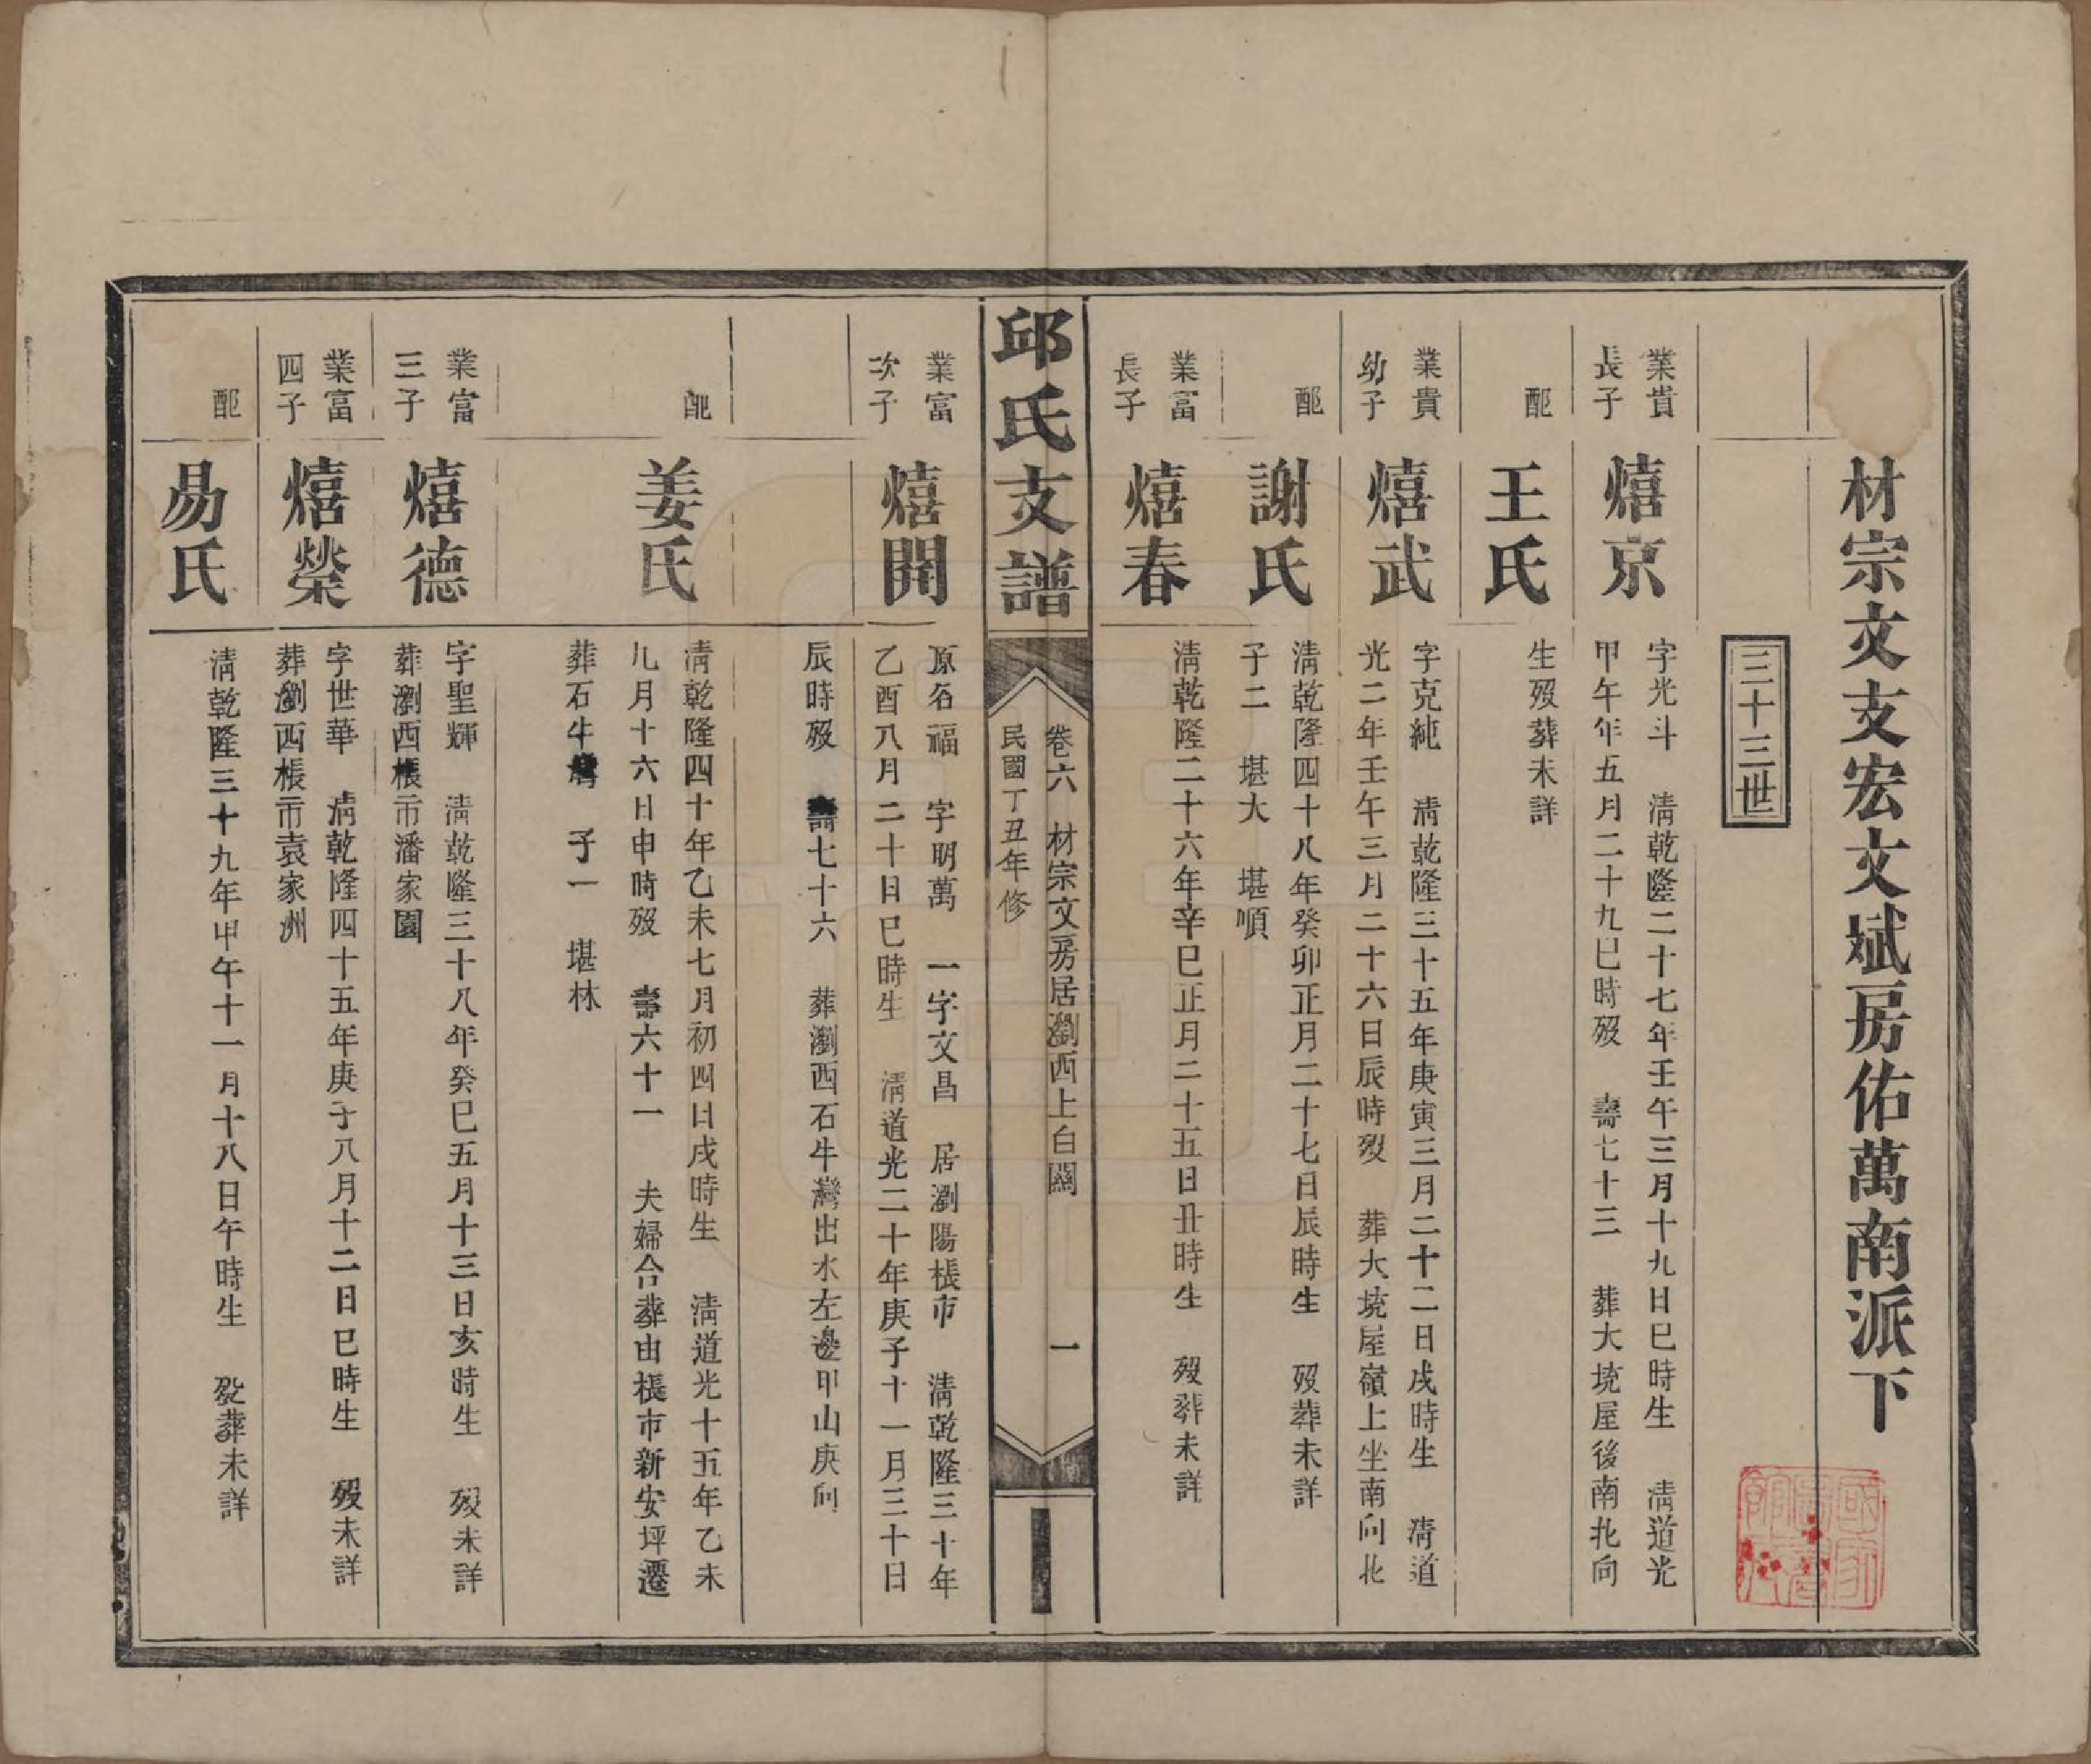 材宗文支宏文斌房佑萬南派下
三十三世
業貴
長子
熺京
字光斗　淸乾隆二十七年壬午三月十九日巳時生　淸道光
甲午年五月二十九巳時歿　壽七十三　葬大垸屋後南北向
配
王氏
生歿葬未詳
業貴
幼子
熺武
字克純　淸乾隆三十五年庚寅三月二十二日戌時生　淸道
光二年壬午三月二十六日辰時歿　葬大垸屋嶺上坐南向北
配
謝氏
淸乾隆四十八年癸卯正月二十七日辰時生　歿葬未詳
子二　堪大　堪順
業富
長子
熺春
淸乾隆二十六年辛巳正月二十五日丑時生　歿葬未詳
邱氏支譜
卷六　材宗文房居瀏西上白關　一
民國丁丑年修
業富
次子
熺開
原名福　字明萬　一字文昌　居瀏陽棖市　淸乾隆三十年
乙酉八月二十日巳時生　淸道光二十年庚子十一月三十日
辰時歿　壽七十六　葬瀏西石牛灣出水左邊甲山庚向
配
姜氏
淸乾隆四十年乙未七月初四日戌時生　淸道光十五年乙未
九月十六日申時歿　壽六十一　夫婦合葬由棖市新安坪遷
葬石牛灣　子一　堪林
業富
三子
熺德
字聖輝　淸乾隆三十八年癸巳五月十三日亥時生　歿未詳
葬瀏西棖市潘家園
業富
四子
熺榮
字世華　淸乾隆四十五年庚子八月十二日巳時生　歿未詳
葬瀏西棖市袁家洲
配
易氏
淸乾隆三十九年甲午十一月十八日午時生　歿葬未詳